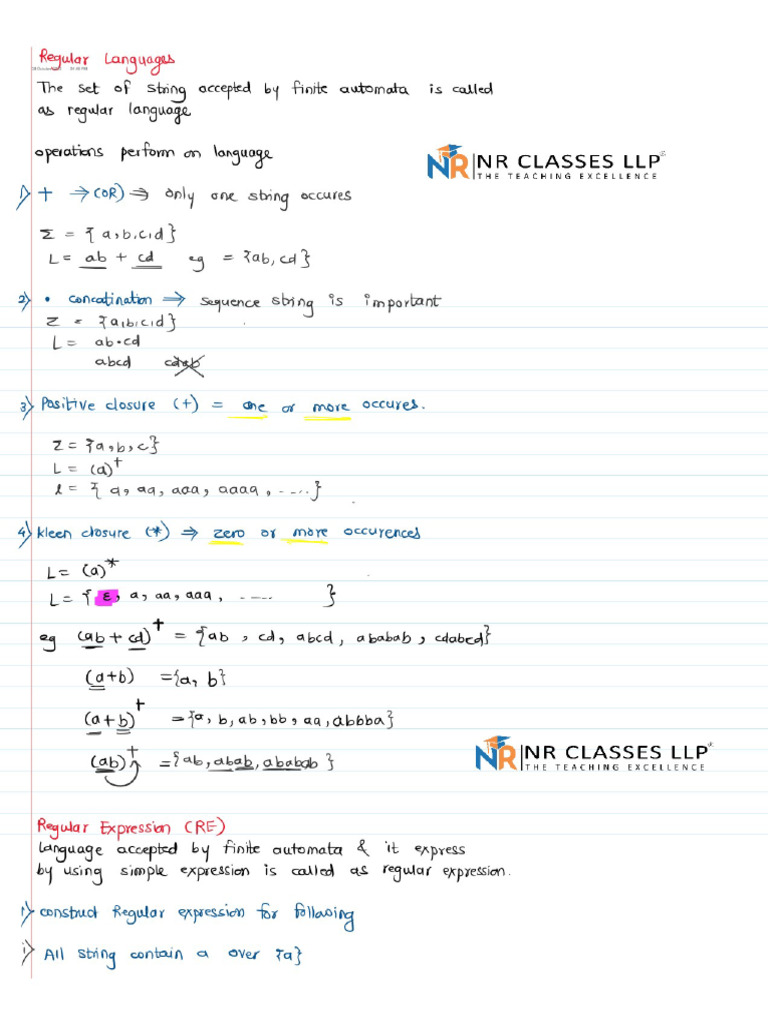 Regular Languages
The set of string accepted by finite automata is called
as regular language
operations perform on language
NR NR CLASSES LLP
THE TEACHING EXCELLENCE
1) + → (OR) ⇒ only one string occures
Σ = { a,b,c,d}
L = ab + cd eg = {ab, cd}
2) • concatination ⇒ sequence string is important
Σ = {a,b,c,d}
L = ab.cd
abcd cdab
3) Positive closure (+) = one or more occures.
Σ = {a,b,c}
L = (a)⁺
l = { a, aa, aaa, aaaa, -...}
4) kleen closure (*) ⇒ zero or more occurences
L = (a)*
L = { ε, a, aa, aaa, ..... }
eg (ab + cd)⁺ = {ab , cd, abcd, ababab, cdabcd}
(a+b) = {a, b}
(a+b)⁺ = {a, b, ab, bb, aa, abbba}
(ab)⁺ = {ab, abab, ababab }
NR NR CLASSES LLP
THE TEACHING EXCELLENCE
Regular Expression (RE)
Language accepted by finite automata & it express
by using simple expression is called as regular expression.
1) construct Regular expression for following
i) All string contain a over {a}